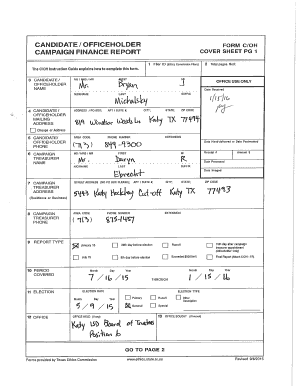 CANDIDATE / OFFICEHOLDER
CAMPAIGN FINANCE REPORT
FORM C/OH
COVER SHEET PG 1
The C/OH Instruction Guide explains how to complete this form.
1 Filer ID (Ethics Commission Filers)
2 Total pages filed:
3 CANDIDATE / OFFICEHOLDER NAME
MS / MRS / MR FIRST MI
Mr. Bryan J
NICKNAME LAST SUFFIX
Michalsky
OFFICE USE ONLY
Date Received
1/15/16
4 CANDIDATE / OFFICEHOLDER MAILING ADDRESS
Change of Address
ADDRESS / PO BOX; APT / SUITE #; CITY; STATE; ZIP CODE
819 Windsor Woods Ln Katy TX 77494
5 CANDIDATE / OFFICEHOLDER PHONE
AREA CODE PHONE NUMBER EXTENSION
(713) 899-9300
Date Hand-delivered or Date Postmarked
6 CAMPAIGN TREASURER NAME
MS / MRS / MR FIRST MI
Mr. Daryn R
NICKNAME LAST SUFFIX
Ebrecht
Receipt # Amount $
Date Processed
Date Imaged
7 CAMPAIGN TREASURER ADDRESS
(Residence or Business)
STREET ADDRESS (NO PO BOX PLEASE); APT / SUITE #; CITY; STATE; ZIP CODE
5443 Katy Hockley Cut-off Katy TX 77493
8 CAMPAIGN TREASURER PHONE
AREA CODE PHONE NUMBER EXTENSION
(713) 875-1457
9 REPORT TYPE
January 15
30th day before election
Runoff
15th day after campaign treasurer appointment (Officeholder Only)
July 15
8th day before election
Exceeded $500 limit
Final Report (Attach C/OH - FR)
10 PERIOD COVERED
Month Day Year
7 / 16 / 15
THROUGH
Month Day Year
1 / 15 / 16
11 ELECTION
ELECTION DATE
Month Day Year
5 / 9 / 15
ELECTION TYPE
Primary
Runoff
Other Description
General
Special
12 OFFICE
OFFICE HELD (if any)
Katy ISD Board of Trustees
Position 6
13 OFFICE SOUGHT (if known)
GO TO PAGE 2
Forms provided by Texas Ethics Commission
www.ethics.state.tx.us